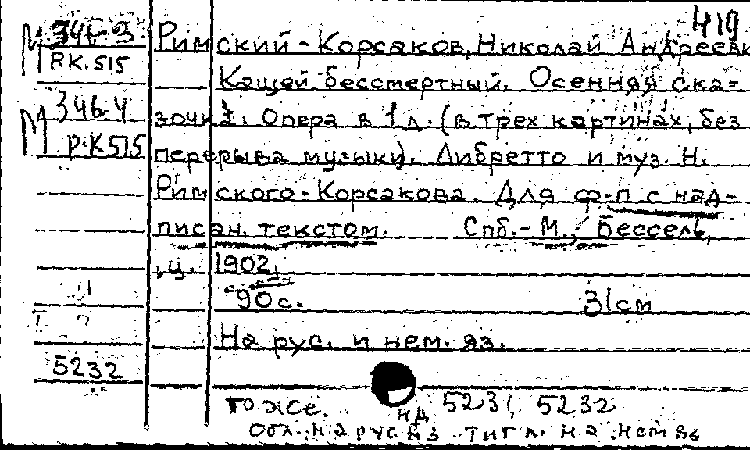 419
М 346-3
РК.515
Римский-Корсаков, Николай Андрееви
Кащей бессмертный. Осенняя ска-
М 346-4
Р.К 515
зочка. Опера в 1 д. (в трех картинах, без
перерыва музыки). Либретто и муз. Н.
Римского-Корсакова. Для ф-п с над-
писан. текстом. Спб.-М., Бессель,
ц. 1902,
90 с. 31 см
На рус. и нем. яз.
5232
тоже. 5231, 5232
Обл. на рус яз тит л. на нем яз